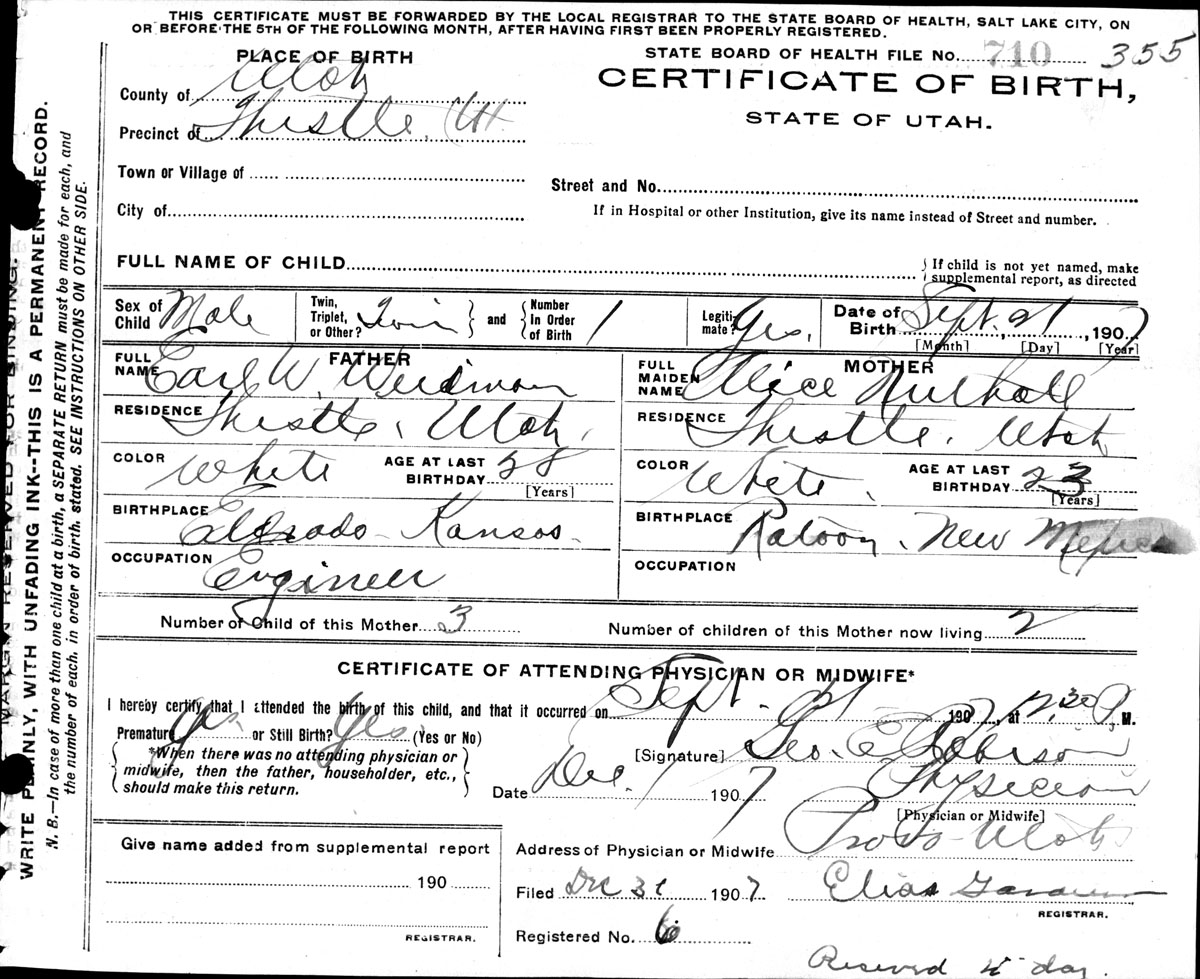 THIS CERTIFICATE MUST BE FORWARDED BY THE LOCAL REGISTRAR TO THE STATE BOARD OF HEALTH, SALT LAKE CITY, ON
OR BEFORE THE 5TH OF THE FOLLOWING MONTH, AFTER HAVING FIRST BEEN PROPERLY REGISTERED.
PLACE OF BIRTH
STATE BOARD OF HEALTH FILE No. 710 355
County of Utah
CERTIFICATE OF BIRTH,
Precinct of Thistle, Ut
STATE OF UTAH.
Town or Village of
Street and No.
City of
If in Hospital or other Institution, give its name instead of Street and number.
FULL NAME OF CHILD
If child is not yet named, make
supplemental report, as directed
Sex of Child Male
Twin, Triplet, or Other? Twin and Number In Order of Birth 1
Legitimate? Yes.
Date of Birth Sept. 21, 1907
[Month] [Day] [Year]
FATHER
FULL NAME Earl W. Weidman
RESIDENCE Thistle, Utah.
COLOR White AGE AT LAST BIRTHDAY 28
[Years]
BIRTHPLACE Eldorado - Kansas -
OCCUPATION Engineer
MOTHER
FULL MAIDEN NAME Alice
RESIDENCE Thistle. Utah
COLOR White. AGE AT LAST BIRTHDAY 23
[Years]
BIRTHPLACE Ratoon, New Mexico
OCCUPATION
Number of Child of this Mother 3
Number of children of this Mother now living 2
CERTIFICATE OF ATTENDING PHYSICIAN OR MIDWIFE*
I hereby certify that I attended the birth of this child, and that it occurred on Sept. 21 1907, at 12,30 P. M.
Premature Yes or Still Birth? Yes (Yes or No)
*When there was no attending physician or
midwife, then the father, householder, etc.,
should make this return.
[Signature] Geo. E. Robison
Date Dec. 1 1907
Physician
[Physician or Midwife]
Address of Physician or Midwife Provo - Utah
Give name added from supplemental report
190
REGISTRAR.
Filed Dec 31 1907 Elias
REGISTRAR.
Registered No. 6
Reserved day
MARGIN RESERVED FOR BINDING.
WRITE PLAINLY, WITH UNFADING INK--THIS IS A PERMANENT RECORD.
N. B.—In case of more than one child at a birth, a SEPARATE RETURN must be made for each, and
the number of each, in order of birth, stated. SEE INSTRUCTIONS ON OTHER SIDE.